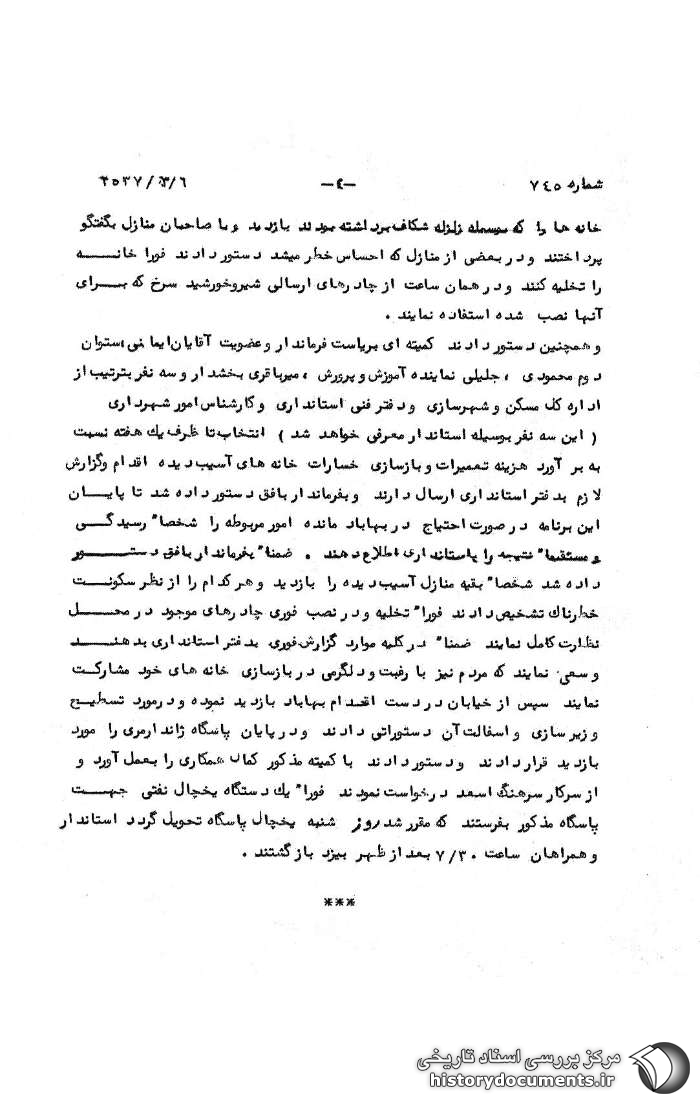 شماره ۷٤٥
-٤-
۲٥۳۷/۳/٦
خانه ها را که بوسیله زلزله شکاف برداشته بودند بازدید و با صاحبان منازل بگفتگو
پرداختند و در بعضی از منازل که احساس خطر میشد دستور دادند فورا خانه
را تخلیه کنند و در همان ساعت از چادرهای ارسالی شیروخورشید سرخ که برای
آنها نصب شده استفاده نمایند .
و همچنین دستور دادند کمیته ای بریاست فرماندار و عضویت آقایان ایمانی ، ستوان
دوم محمودی ، جلیلی نماینده آموزش و پرورش ، میرباقری بخشدار و سه نفر بترتیب از
اداره کل مسکن و شهرسازی و دفتر فنی استانداری و کارشناس امور شهرداری
( این سه نفر بوسیله استاندار معرفی خواهد شد ) انتخاب تا ظرف یك هفته نسبت
به بر آورد هزینه تعمیرات و بازسازی خسارات خانه های آسیب دیده اقدام و گزارش
لازم بدفتر استانداری ارسال دارند و بفرماندار بافق دستور داده شد تا پایان
این برنامه در صورت احتیاج در بهاباد مانده امور مربوطه را شخصا" رسیدگی
و مستقیما" نتیجه را باستانداری اطلاع دهند . ضمنا" بفرماندار بافق دستور
داده شد شخصا" بقیه منازل آسیب دیده را بازدید و هر کدام را از نظر سکونت
خطرناك تشخیص دادند فورا" تخلیه و در نصب فوری چادرهای موجود در محل
نظارت کامل نمایند ضمنا" در کلیه موارد گزارش فوری بدفتر استانداری بدهند
و سعی نمایند که مردم نیز با رغبت و دلگرمی در بازسازی خانه های خود مشارکت
نمایند سپس از خیابان در دست اقدام بهاباد بازدید نموده و در مورد تسطیح
و زیرسازی و اسفالت آن دستوراتی دادند و در پایان پاسگاه ژاندارمری را مورد
بازدید قرار دادند و دستور دادند با کمیته مذکور کمال همکاری را بعمل آورد و
از سرکار سرهنگ اسعد درخواست نمودند فورا" یك دستگاه یخچال نفتی جهت
پاسگاه مذکور بفرستند که مقرر شد روز شنبه یخچال پاسگاه تحویل گردد استاندار
و همراهان ساعت ۷/۳۰ بعد از ظهر بیزد بازگشتند .
***
مرکز بررسی اسناد تاریخی
historydocuments.ir